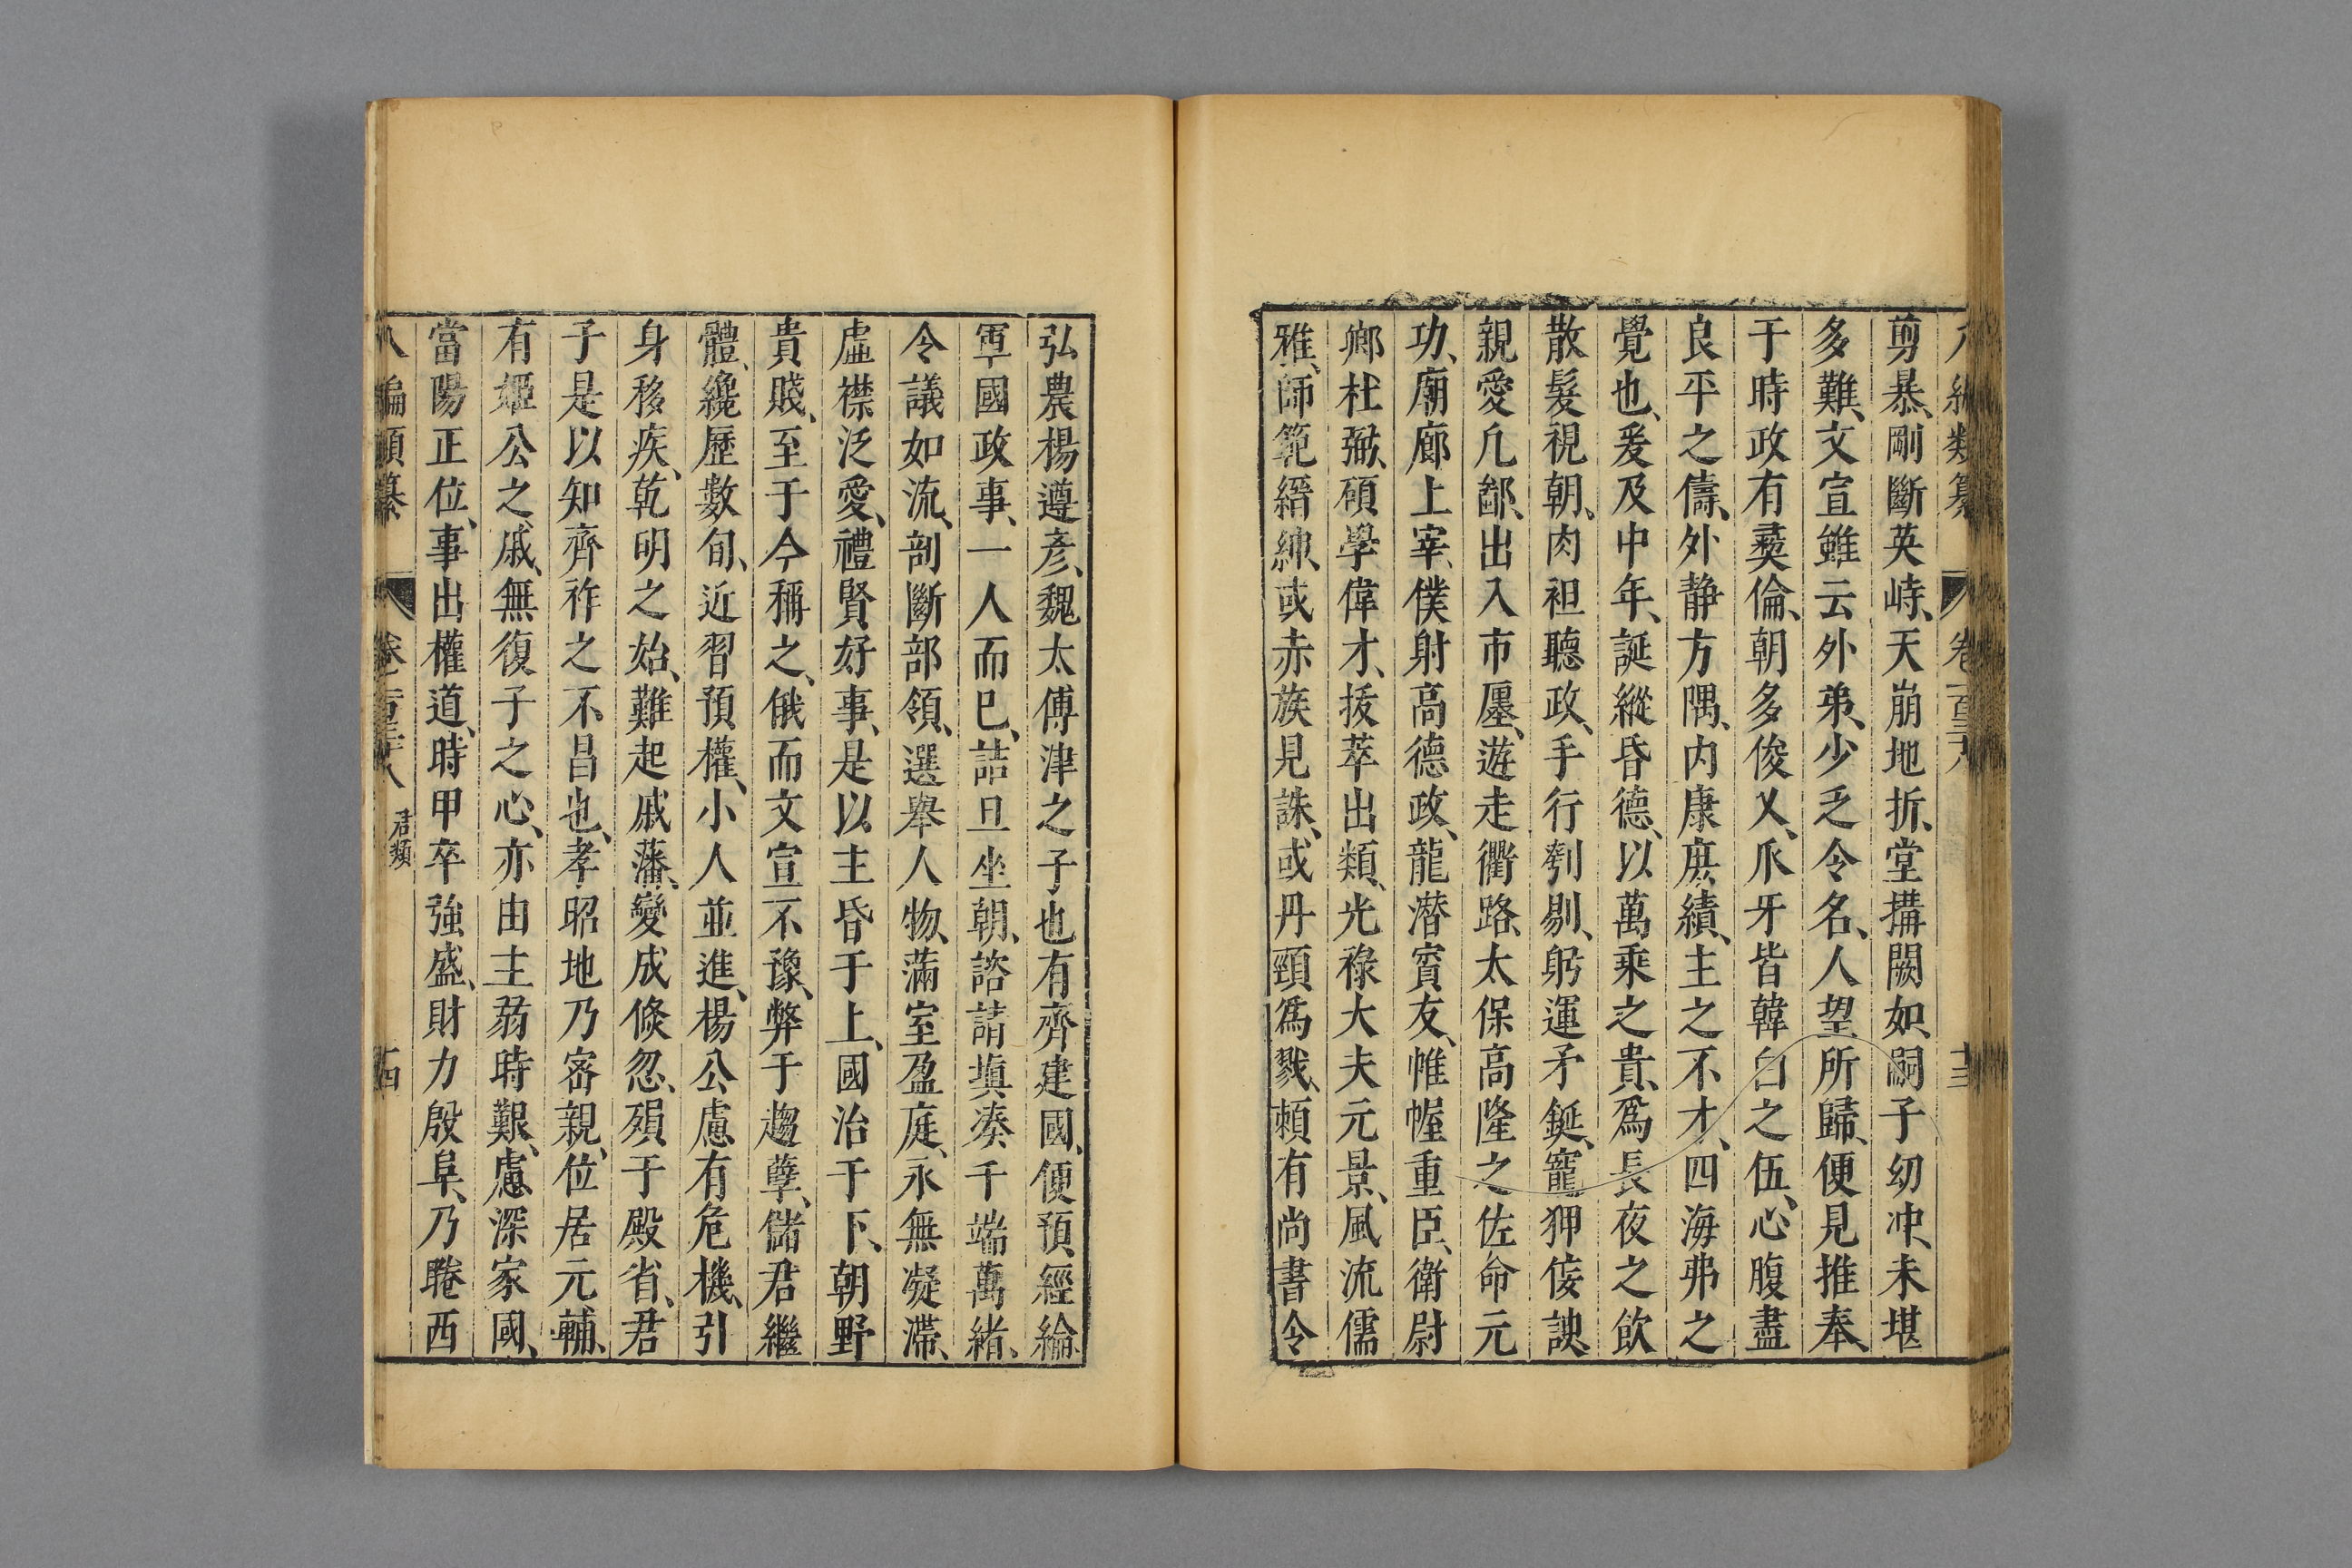 八編類纂 卷一百三十八 十三
剪暴、剛斷英峙、天崩地折、堂搆闕如、嗣子幼冲、未堪
多難、文宣雖云外弟、少乏令名、人望所歸、便見推奉、
于時政有彛倫、朝多俊乂、爪牙皆韓白之伍、心腹盡
良平之儔、外静方隅、内康庶績、主之不才、四海弗之
覺也、爰及中年、誕縱昏德、以萬乘之貴、爲長夜之飲
散髮視朝、肉袒聽政、手行刳剔、躬運矛鋋、寵狎侫諛、
親愛凡鄙、出入市廛、遊走衢路、太保高隆之佐命元
功、廟廊上宰、僕射高德政、龍潜賓友、帷幄重臣、衛尉
卿杜弼、碩學偉才、拔萃出類、光祿大夫元景、風流儒
雅、師範縉紳、或赤族見誅、或丹頸爲戮、頼有尚書令
弘農楊遵彥、魏太傅津之子也有齊建國、便預經綸
軍國政事、一人而已、詰旦坐朝、諮請填湊千端萬緒、
令議如流、剖斷部領、選舉人物、滿室盈庭、永無凝滯、
虛襟泛愛、禮賢好事、是以主昏于上、國治于下、朝野
貴賤、至于今稱之、俄而文宣不豫、弊于麴蘖、儲君繼
體、纔歷數旬、近習預權、小人並進、楊公慮有危機、引
身移疾、乾明之始、難起戚藩、變成倏忽、殞于殿省、君
子是以知齊祚之不昌也、孝昭地乃密親、位居元輔、
有姬公之戚、無復子之心、亦由主弱時艱、慮深家國、
當陽正位、事出權道、時甲卒強盛、財力殷阜、乃睠西
八編類纂 卷一百三十八 君類 十四